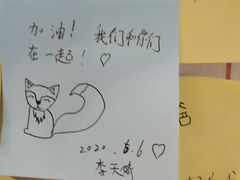 加油！我们和你们
在一起！♡
2020.6.6♡
李天
爸